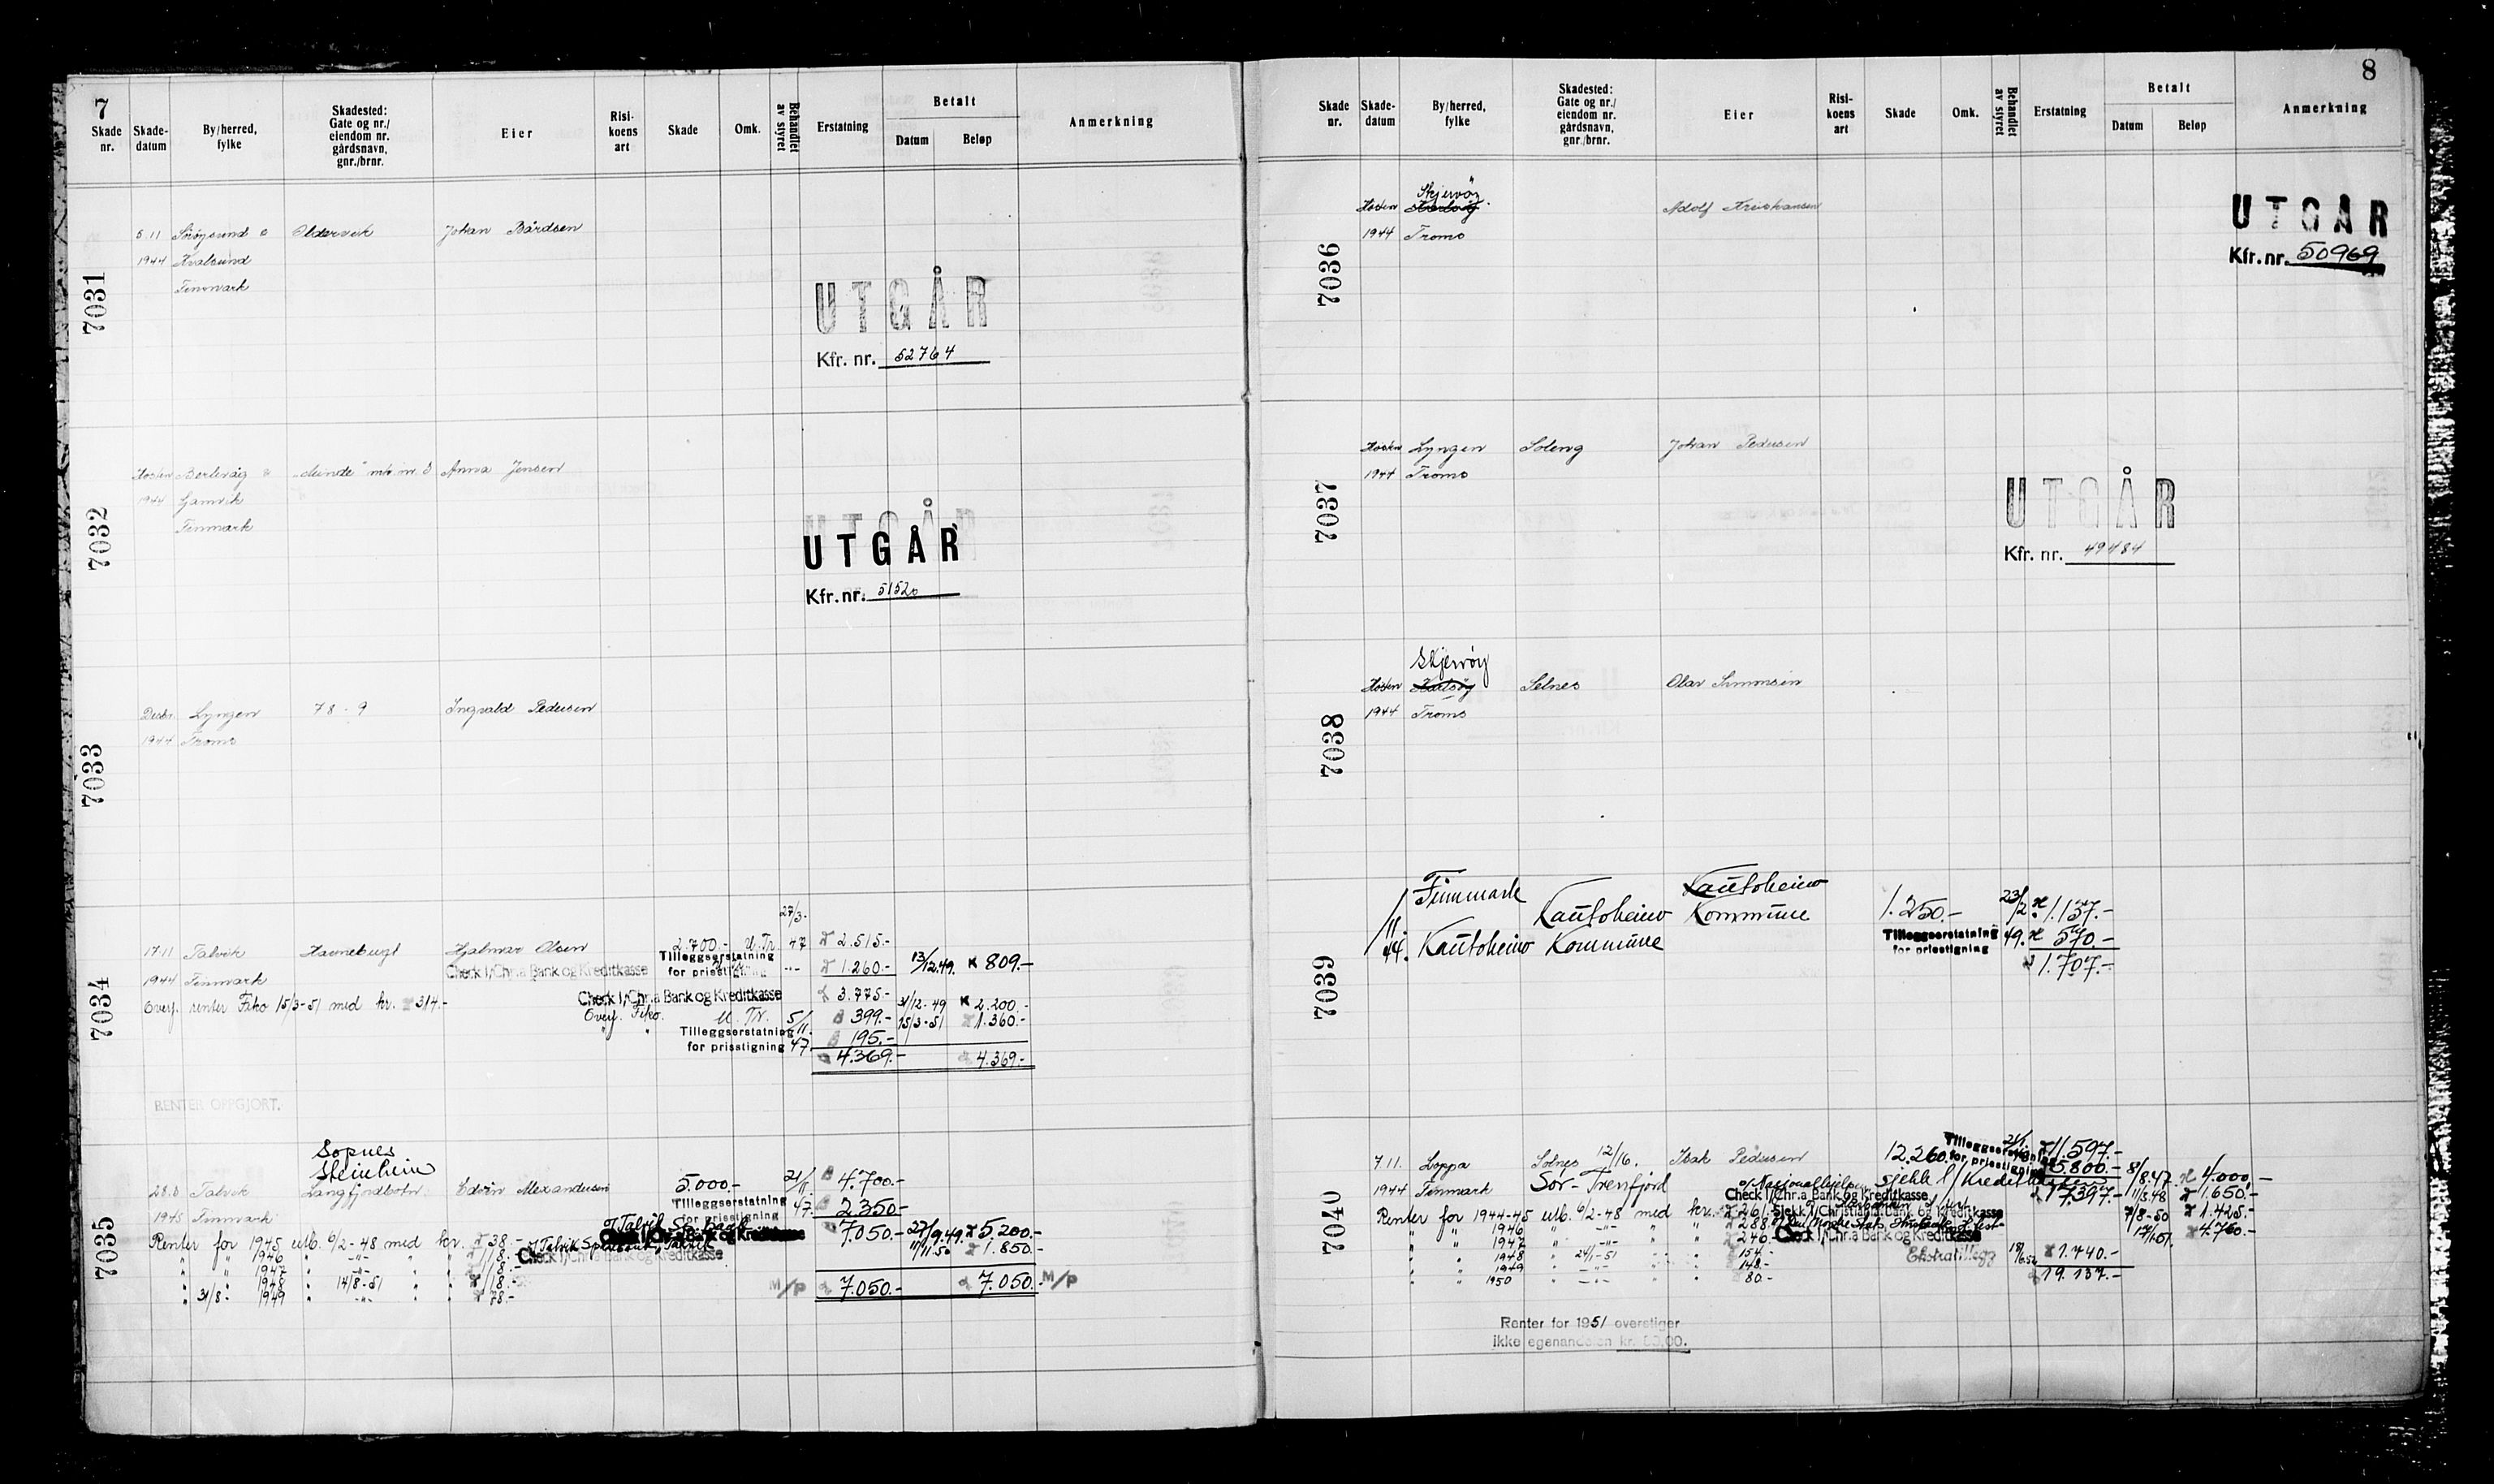 7
Skade nr.
Skade-datum
By/herred, fylke
Skadested: Gate og nr./ eiendom nr. gårdsnavn, gnr./brnr.
Eier
Risi-koens art
Skade
Omk.
Behandlet av styret
Erstatning
Betalt
Datum
Beløp
Anmerkning
7031
5.11 Sørøysund & Oldervik Johan Bårdsen
1944 Kvalsund
Finnmark
UTGÅR
Kfr. nr. 52764
7032
Høsten Berlevåg & mtr. nr. Anna Jensen
1944 Gamvik
Finnmark
UTGÅR
UTGÅR
Kfr. nr. 51520
7033
Desbr. Lyngen 78 - 9 Ingvald Pedersen
1944 Troms
7034
27/3-
17.11 Talvik Hjalmar Olsen 2.700.- U.Tr. 47 2.515.-
Tilleggserstatning
for prisstigning -"- 1.260.- 13/12.49. K 809.-
1944 Finnmark Check 1/Chr.a Bank og Kreditkasse
Check 1/Chr.a Bank og Kreditkasse 3.775.- 31/12-49 K 2.200.-
Overf. renter Fiko 15/3-51 med kr. 314.-
Overf. Fiko. U. Tr. 5/11. 399.- 15/3-51 1.360.-
Tilleggserstatning
for prisstigning 47. 195.-
4.369.- 4.369.-
RENTER OPPGJORT.
7035
Sopnes
Steinheim
Talvik Langfjordbotn. Edvin Alexandersen 5.000.- 21/11 4.700.-
Tilleggserstatning
for prisstigning 47. 2.350.-
1945 Finnmark
7.050.- 27/9.49. 5.200.-
Renter for 1945 utb. 6/2-48 med kr. 38.-
Check 1/Chr.a Bank og Kreditkasse 11/11.50 1.850.-
" " 1946 " -"- " " 118.-
" " 1947 " -"- " " 118.-
" " 1948 " 14/8-51 " " 118.-
" 31/8- 1949 " -"- " " 78.-
M/P 7.050.- 7.050.- M/P
8
Skade nr.
Skade-datum
By/herred, fylke
Skadested: Gate og nr./ eiendom nr. gårdsnavn, gnr./brnr.
Eier
Risi-koens art
Skade
Omk.
Behandlet av styret
Erstatning
Betalt
Datum
Beløp
Anmerkning
7036
Skjervöy
Høsten Karlsöy Adolf Kristiansen
1944 Troms
UTGÅR
Kfr. nr. 50969
7037
Høsten Lyngen Soleng Johan Pedersen
1944 Troms
UTGÅR
Kfr. nr. 49484
7038
Skjervöy
Høsten Karlsöy Selnes Olav Simonsen
1944 Troms
7039
Finnmark Kautokeino
/11. Kautokeino Kommune 1.250.- 23/2 1.137.-
44. Kautokeino Kommune
Tilleggserstatning
for prisstigning 49. 570.-
1.707.-
7040
7.11. Loppa Solnes 12/16. Isak Pedersen 12.260. 21/1. 11.597.-
Tilleggserstatning
for prisstigning 5.800.- 8/8.47 4.000,-
1944 Finnmark Sör-Tverrfjord
sjekk 1/Kreditkassen 17.397.- 11/3.48 1.650.-
Check 1/Chr.a Bank og Kreditkasse
Renter for 1944-45 utb. 6/2-48 med kr. 261.- Sjekk 1/Christiania Bank og Kreditkasse 7/8-50 1.425.-
" " 1946 " -"- " " 288.-
" " 1947 " -"- " " 246.- Check 1/Chr.a Bank og Kreditkasse 17/1.51. 4.760.-
" " 1948 " 24/1-51 " " 154.- Ekstratillegg 1.740.-
" " 1949 " -"- " " 148.-
" " 1950 " -"- " " 80.-
19.137.-
Renter for 1951 overstiger
ikke egenandelen kr. 50,00.